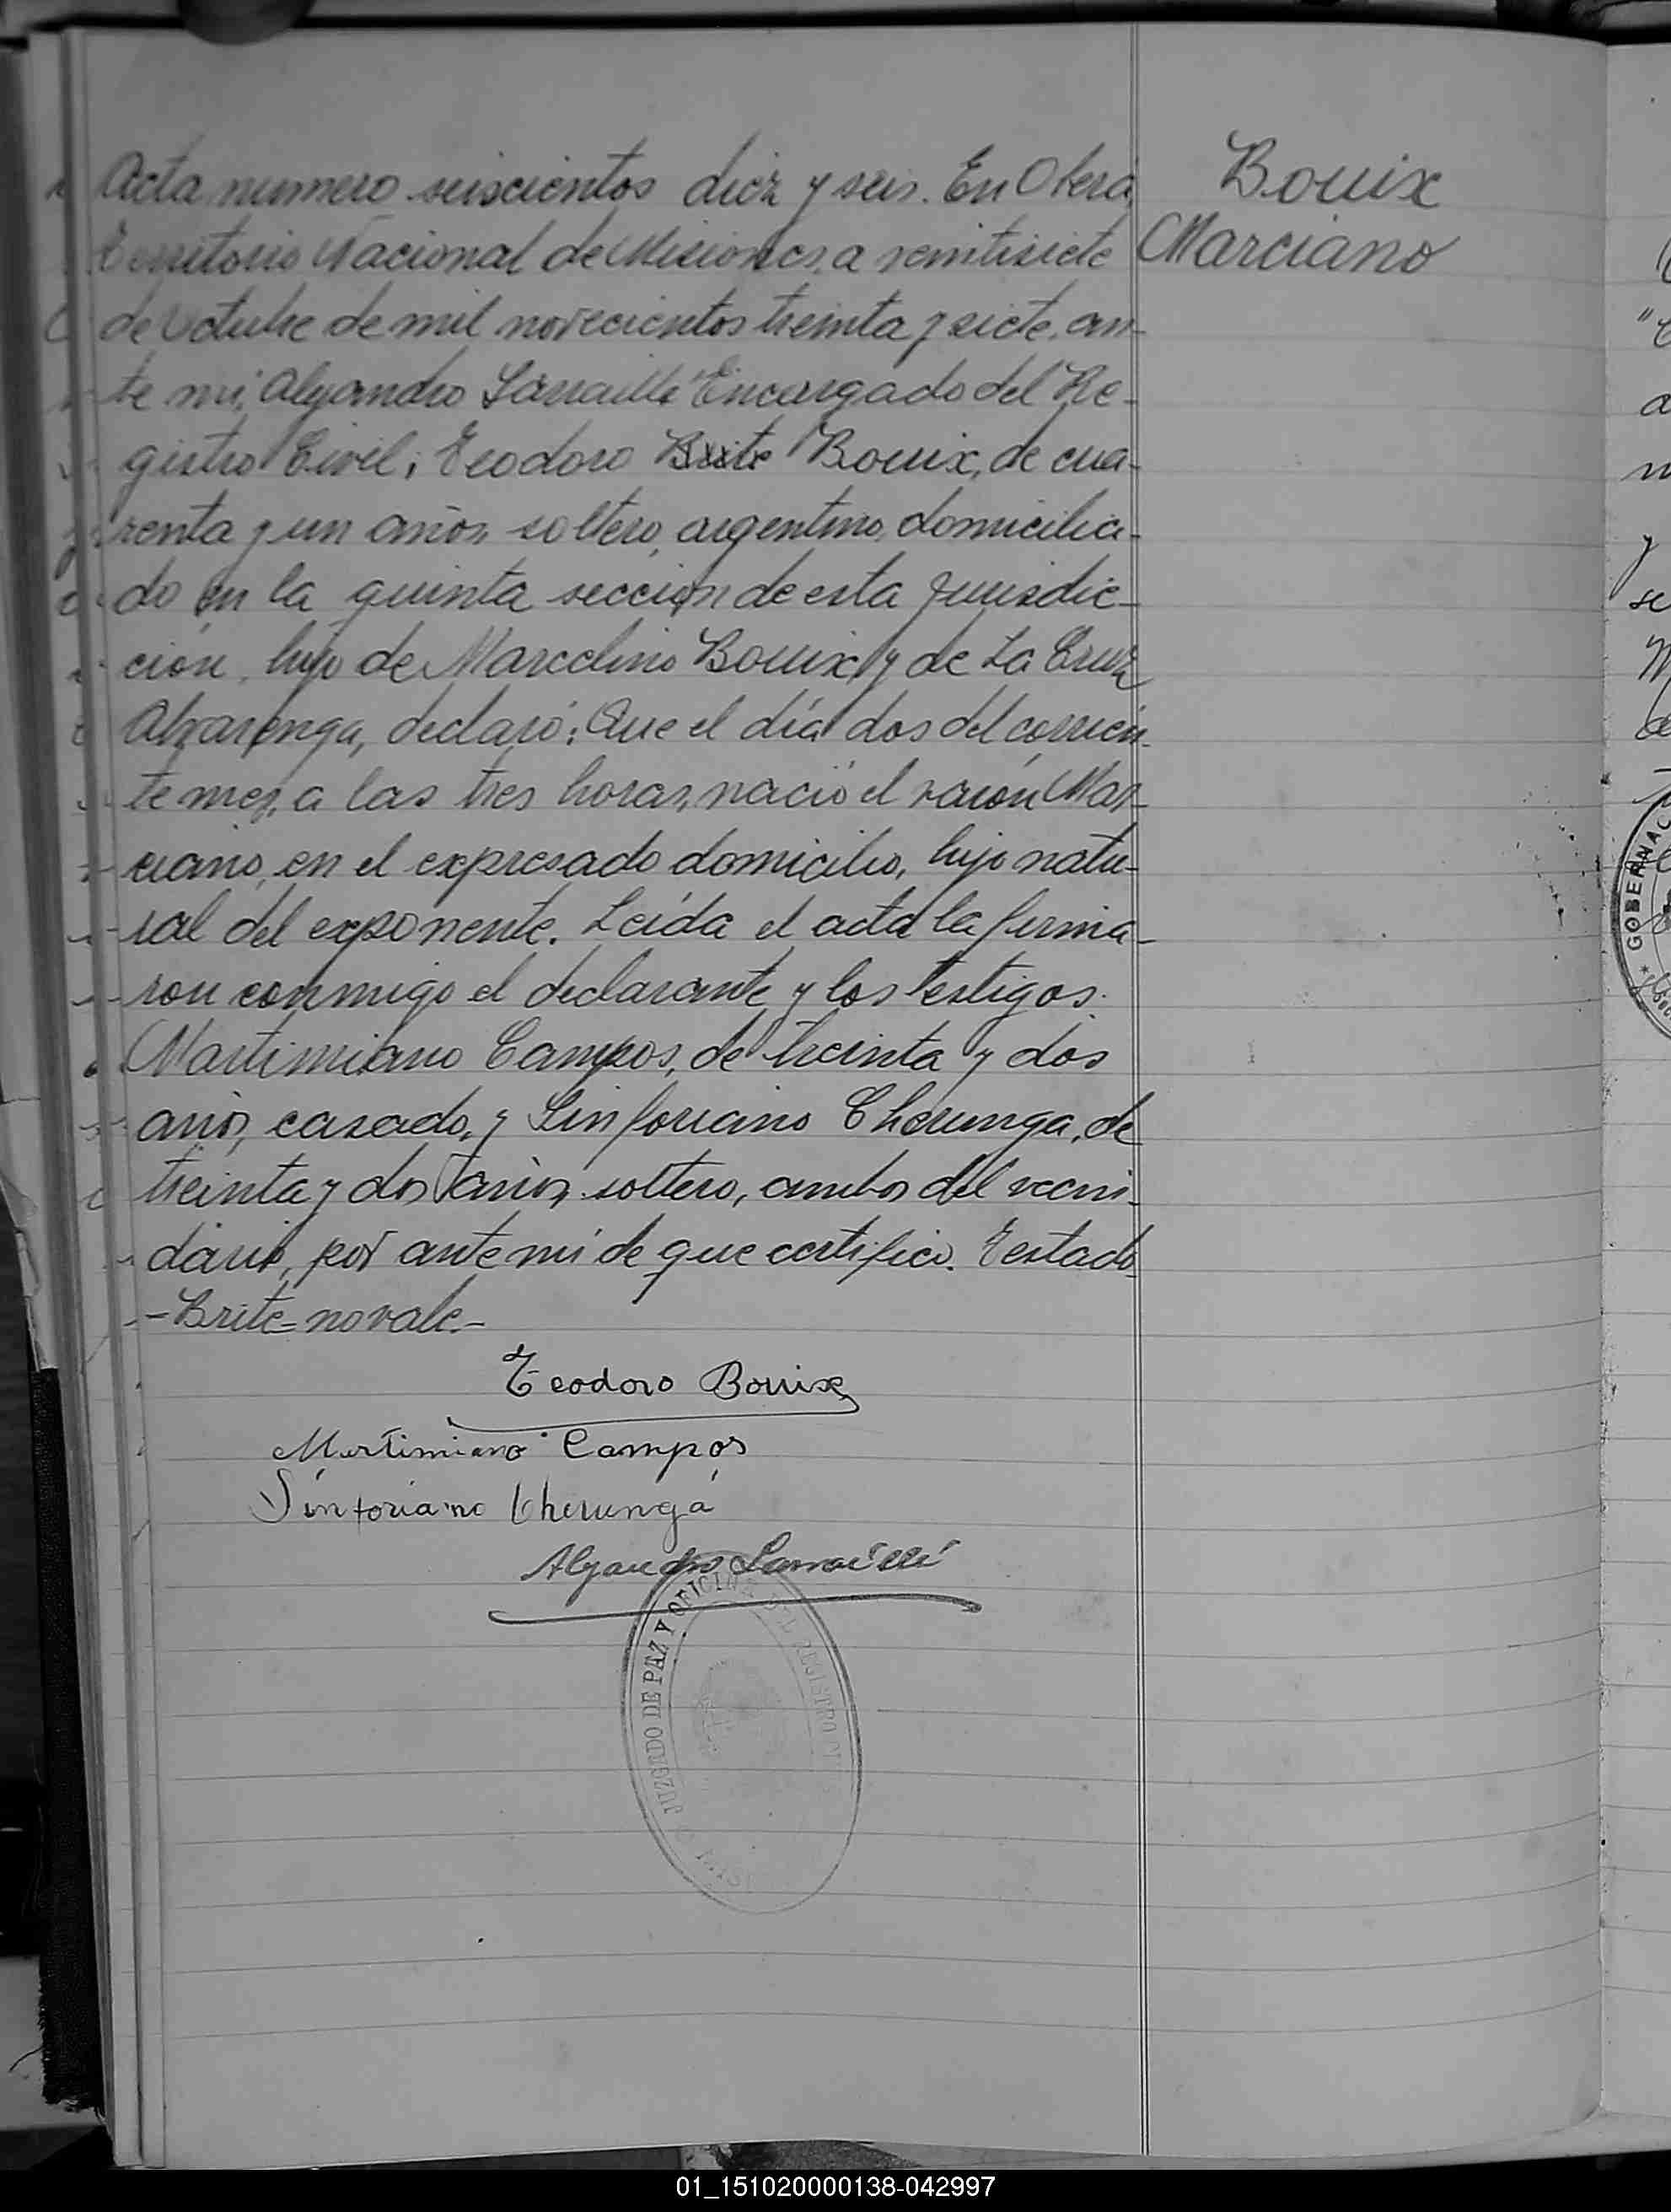 Acta numero seiscientos diez y seis. En Oberá,
Territorio Nacional de Misiones, a veintisiete
de Octubre de mil novecientos treinta y siete, an-
te mi, Alejandro Larraillé Encargado del Re-
gistro Civil; Teodoro Brite Bouix, de cua-
renta y un años, soltero, argentino, domicilia-
do en la quinta sección de esta Jurisdic-
ción, hijo de Marcelino Bouix y de La Cruz
Alvarenga, declaró: Que el día dos del corrien-
te mes, a las tres horas, nació el varón Mar-
ciano, en el expresado domicilio, hijo natu-
ral del exponente. Leída el acta la firma-
ron conmigo el declarante y los testigos.
Martimiano Campos, de treinta y dos
años, casado, y Sinforiano Cherunga, de
treinta y dos años, soltero, ambos del vecin-
dario, por ante mi de que certifico. Testado
-Brite- no vale.-
Bouix
Marciano
Teodoro Bouix
Martimiano Campos
Sinforiano Cherunga
Alejandro
JUZGADO DE PAZ Y OFICINA DEL REGISTRO
GOBERNAC
01_151020000138-042997